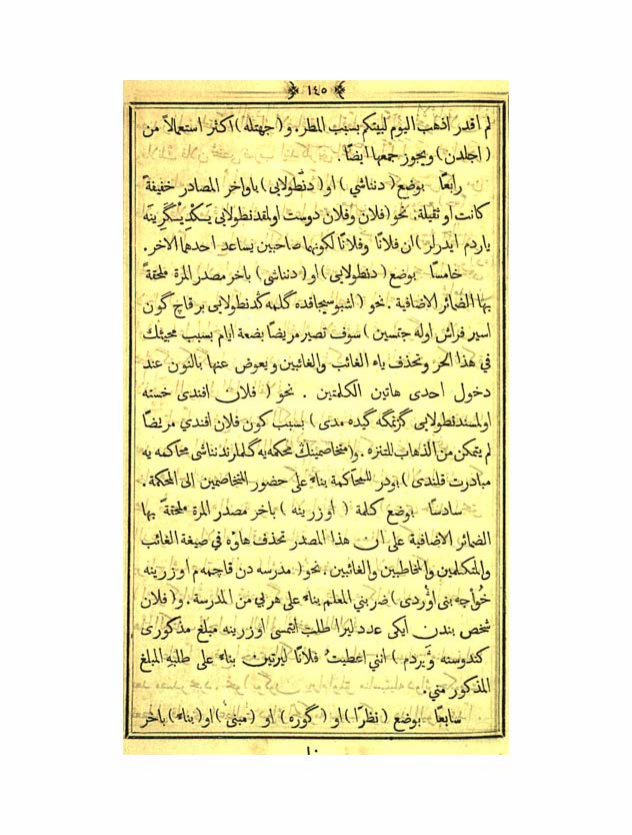 ١٤٥
لم اقدر اذهب اليوم لبيتكم بسبب المطر. و (جهتله) اكثر استعمالا من
(اجلدن) ويجوز جمعها ايضًا.
رابعًا بوضع (دنناشي) او (دنطولايى) باواخر المصادر خفيفة
كانت او ثقيلة. نحو (فلان وفلان دوست اولمقدنطولايى يكديگرينه
ياردم ايدرلر) ان فلانًا وفلانًا لكونهما صاحبين يساعد احدهما الاخر.
خامسًا بوضع (دنطولايى) او (دنناشى) باخر مصدر المرة ملحقةً
بها الضمائر الاضافية. نحو (اشبو سيجاقده گلمه كدنطولايى بر قاچ گون
اسير فراش اوله جقسين) سوف تصير مريضًا بضعة ايام بسبب مجيئك
في هذا الحر وتحذف ياء الغائب والغائبين ويعوض عنها بالنون عند
دخول احدى هاتين الكلمتين. نحو (فلان افندى خسته
اولمسندنطولايى گزمگه گيده مدى) بسبب كون فلان افندي مريضًا
لم يتمكن من الذهاب للتنزه. و (متخاصمينك محكمه يه گلملرندنناشى محاكمه يه
مبادرت قلندى) بودر للمحاكمة بناءً على حضور المتخاصمين الى المحكمة.
سادسًا بوضع كلمة (اوزرينه) باخر مصدر المرة ملحقةً بها
الضمائر الاضافية على ان هذا المصدر تحذف هاؤه في صيغة الغائب
والمتكلمين والمخاطبين والغائبين. نحو (مدرسه دن قاچمه م اوزرينه
خواجه بنى اوردى) ضربني المعلم بناءً على هربي من المدرسة. و (فلان
شخص بندن ايكى عدد ليرا طلب ايتمسى اوزرينه مبلغ مذكورى
كندوسنه ويردم) انني اعطيتُ فلانًا ليرتين بناءً على طلبهِ المبلغ
المذكور مني.
سابعًا بوضع (نظرًا) او (گوره) او (مبنى) او (بناءً) باخر
١٠